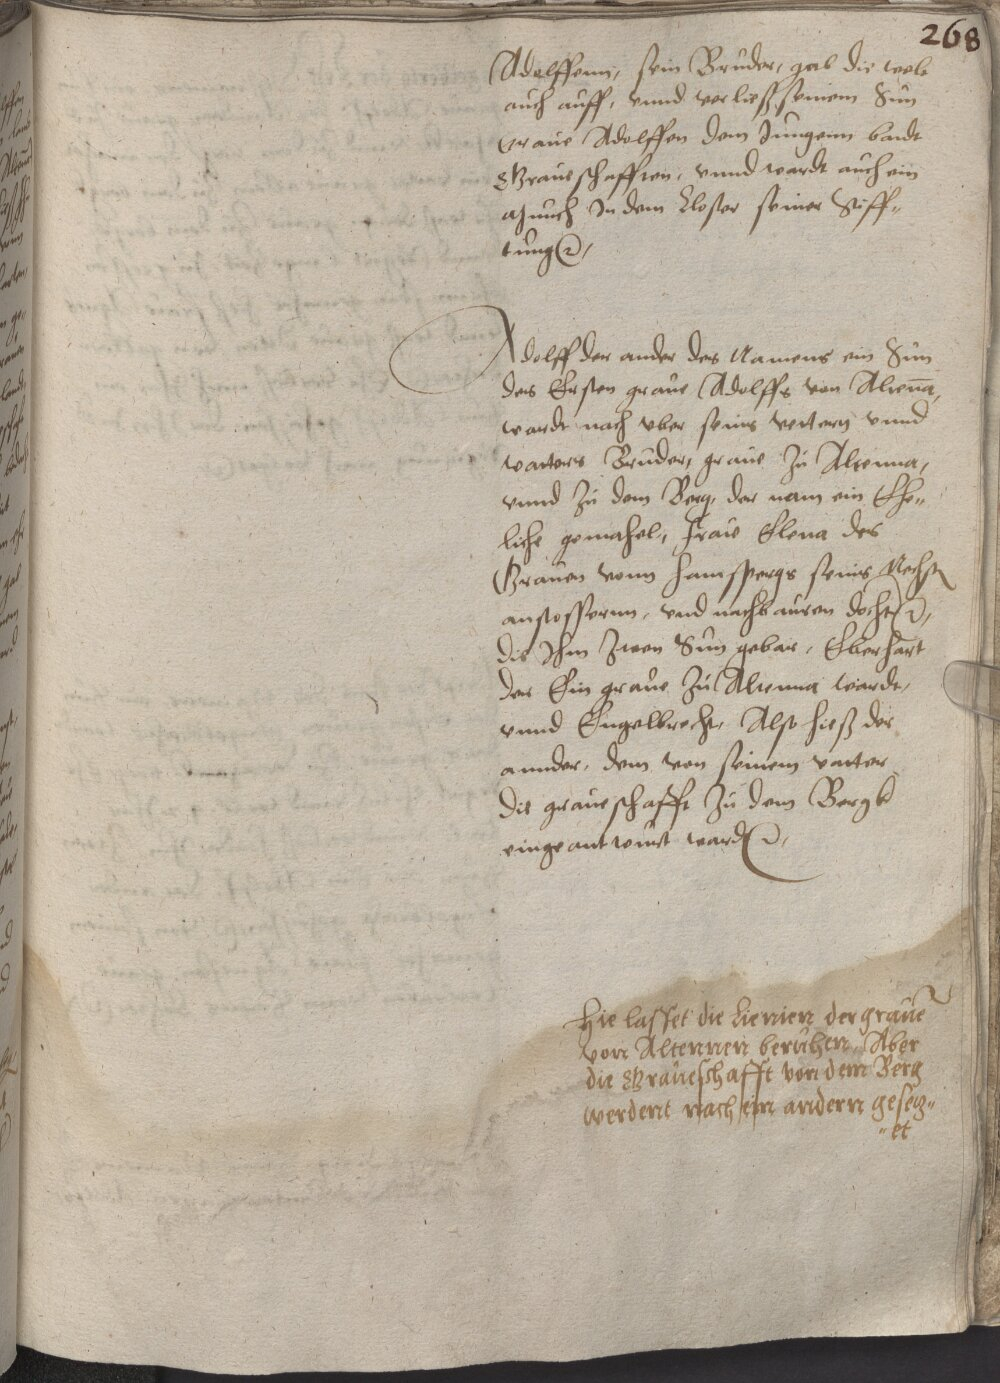 268
Adolffenn, sein Bruder, gab die welt
auch auff, vnnd verließ seinem Sun
Graue Adolffen dem Jungenn baidt
Graueschafften, vnnd wardt auch ein
Munch In dem Closter seiner Stiff„
tung
Adolff der ander des Namens ein Sun
des Ersten graue Adolffs von Altenna,
wardt nach vber seins vettern vnnd
vatters Bruder, graue Zu Altenna,
vnnd Zu dem Berg, der nam ein Ehe„
liche gemahel, Fraue Elena des
Grauen vonn Hainspergs seins Nechsten
anstossernn, vnd nachbauren dochter,
die Ihm Zwen Sun gebar, Eberhart
der Ein graue Zu Altenna wardt,
vnnd Engelbrecht, Also hieß der
annder, dem von seinem vatter
die graueschafft Zu dem Bergk
eingeantwurt ward
Hie lasset die Lienien der graue
von Altennen beruhen, Aber
die Graueschafft von dem Berg
werdent nach ein andern gesetz„
„et